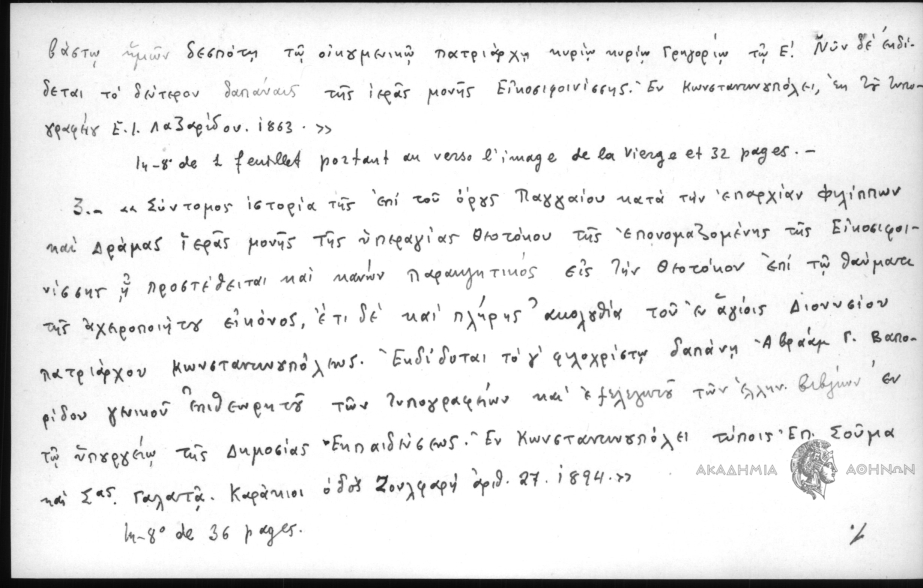 βάστῳ ἡμῶν δεσπότῃ τῷ οἰκουμενικῷ πατριάρχῃ κυρίῳ κυρίῳ Γρηγορίῳ τῷ Ε! Νῦν δὲ ἐκδί-
δεται τὸ δεύτερον δαπάναις τῆς ἱερᾶς μονῆς Εἰκοσιφοινίσσης. Ἐν Κωνσταντινουπόλει, ἐκ τοῦ τυπο-
γραφείου Ε.Ι. Λαζαρίδου. 1863. >>
In-8° de 1 feuillet portant au verso l'image de la Vierge et 32 pages. -
3.- << Σύντομος ἱστορία τῆς ἐπὶ τοῦ ὄρους Παγγαίου κατὰ τὴν ἐπαρχίαν Φιλίππων
καὶ Δράμας ἱερᾶς μονῆς τῆς ὑπεραγίας Θεοτόκου τῆς ἐπονομαζομένης τῆς Εἰκοσιφοι-
νίσσης ᾗ προστέθειται καὶ κανὼν παρακλητικός εἰς τὴν Θεοτόκον ἐπὶ τῷ θαύματι
τῆς ἀχειροποιήτου εἰκόνος, ἔτι δὲ καὶ πλήρης ἀκολουθία τοῦ ἐν ἁγίοις Διονυσίου
πατριάρχου Κωνσταντινουπόλεως. Ἐκδίδοται τὸ γ' φιλοχρίστῳ δαπάνῃ Ἀβραάμ Γ. Βαπο-
ρίδου γενικοῦ ἐπιθεωρητοῦ τῶν τυπογραφείων καὶ ἐξελεγκτοῦ τῶν ἑλλην. βιβλίων ἐν
τῷ ὑπουργείῳ τῆς Δημοσίας Ἐκπαιδεύσεως. Ἐν Κωνσταντινουπόλει τύποις Ἐπ. Σούμα
καὶ Σας. Γαλατᾷ. Καράκιοϊ ὁδὸς Ζουλφαρῆ ἀριθ. 27. 1894. >>
In-8° de 36 pages.
ΑΚΑΔΗΜΙΑ ΑΘΗΝΩΝ
./.